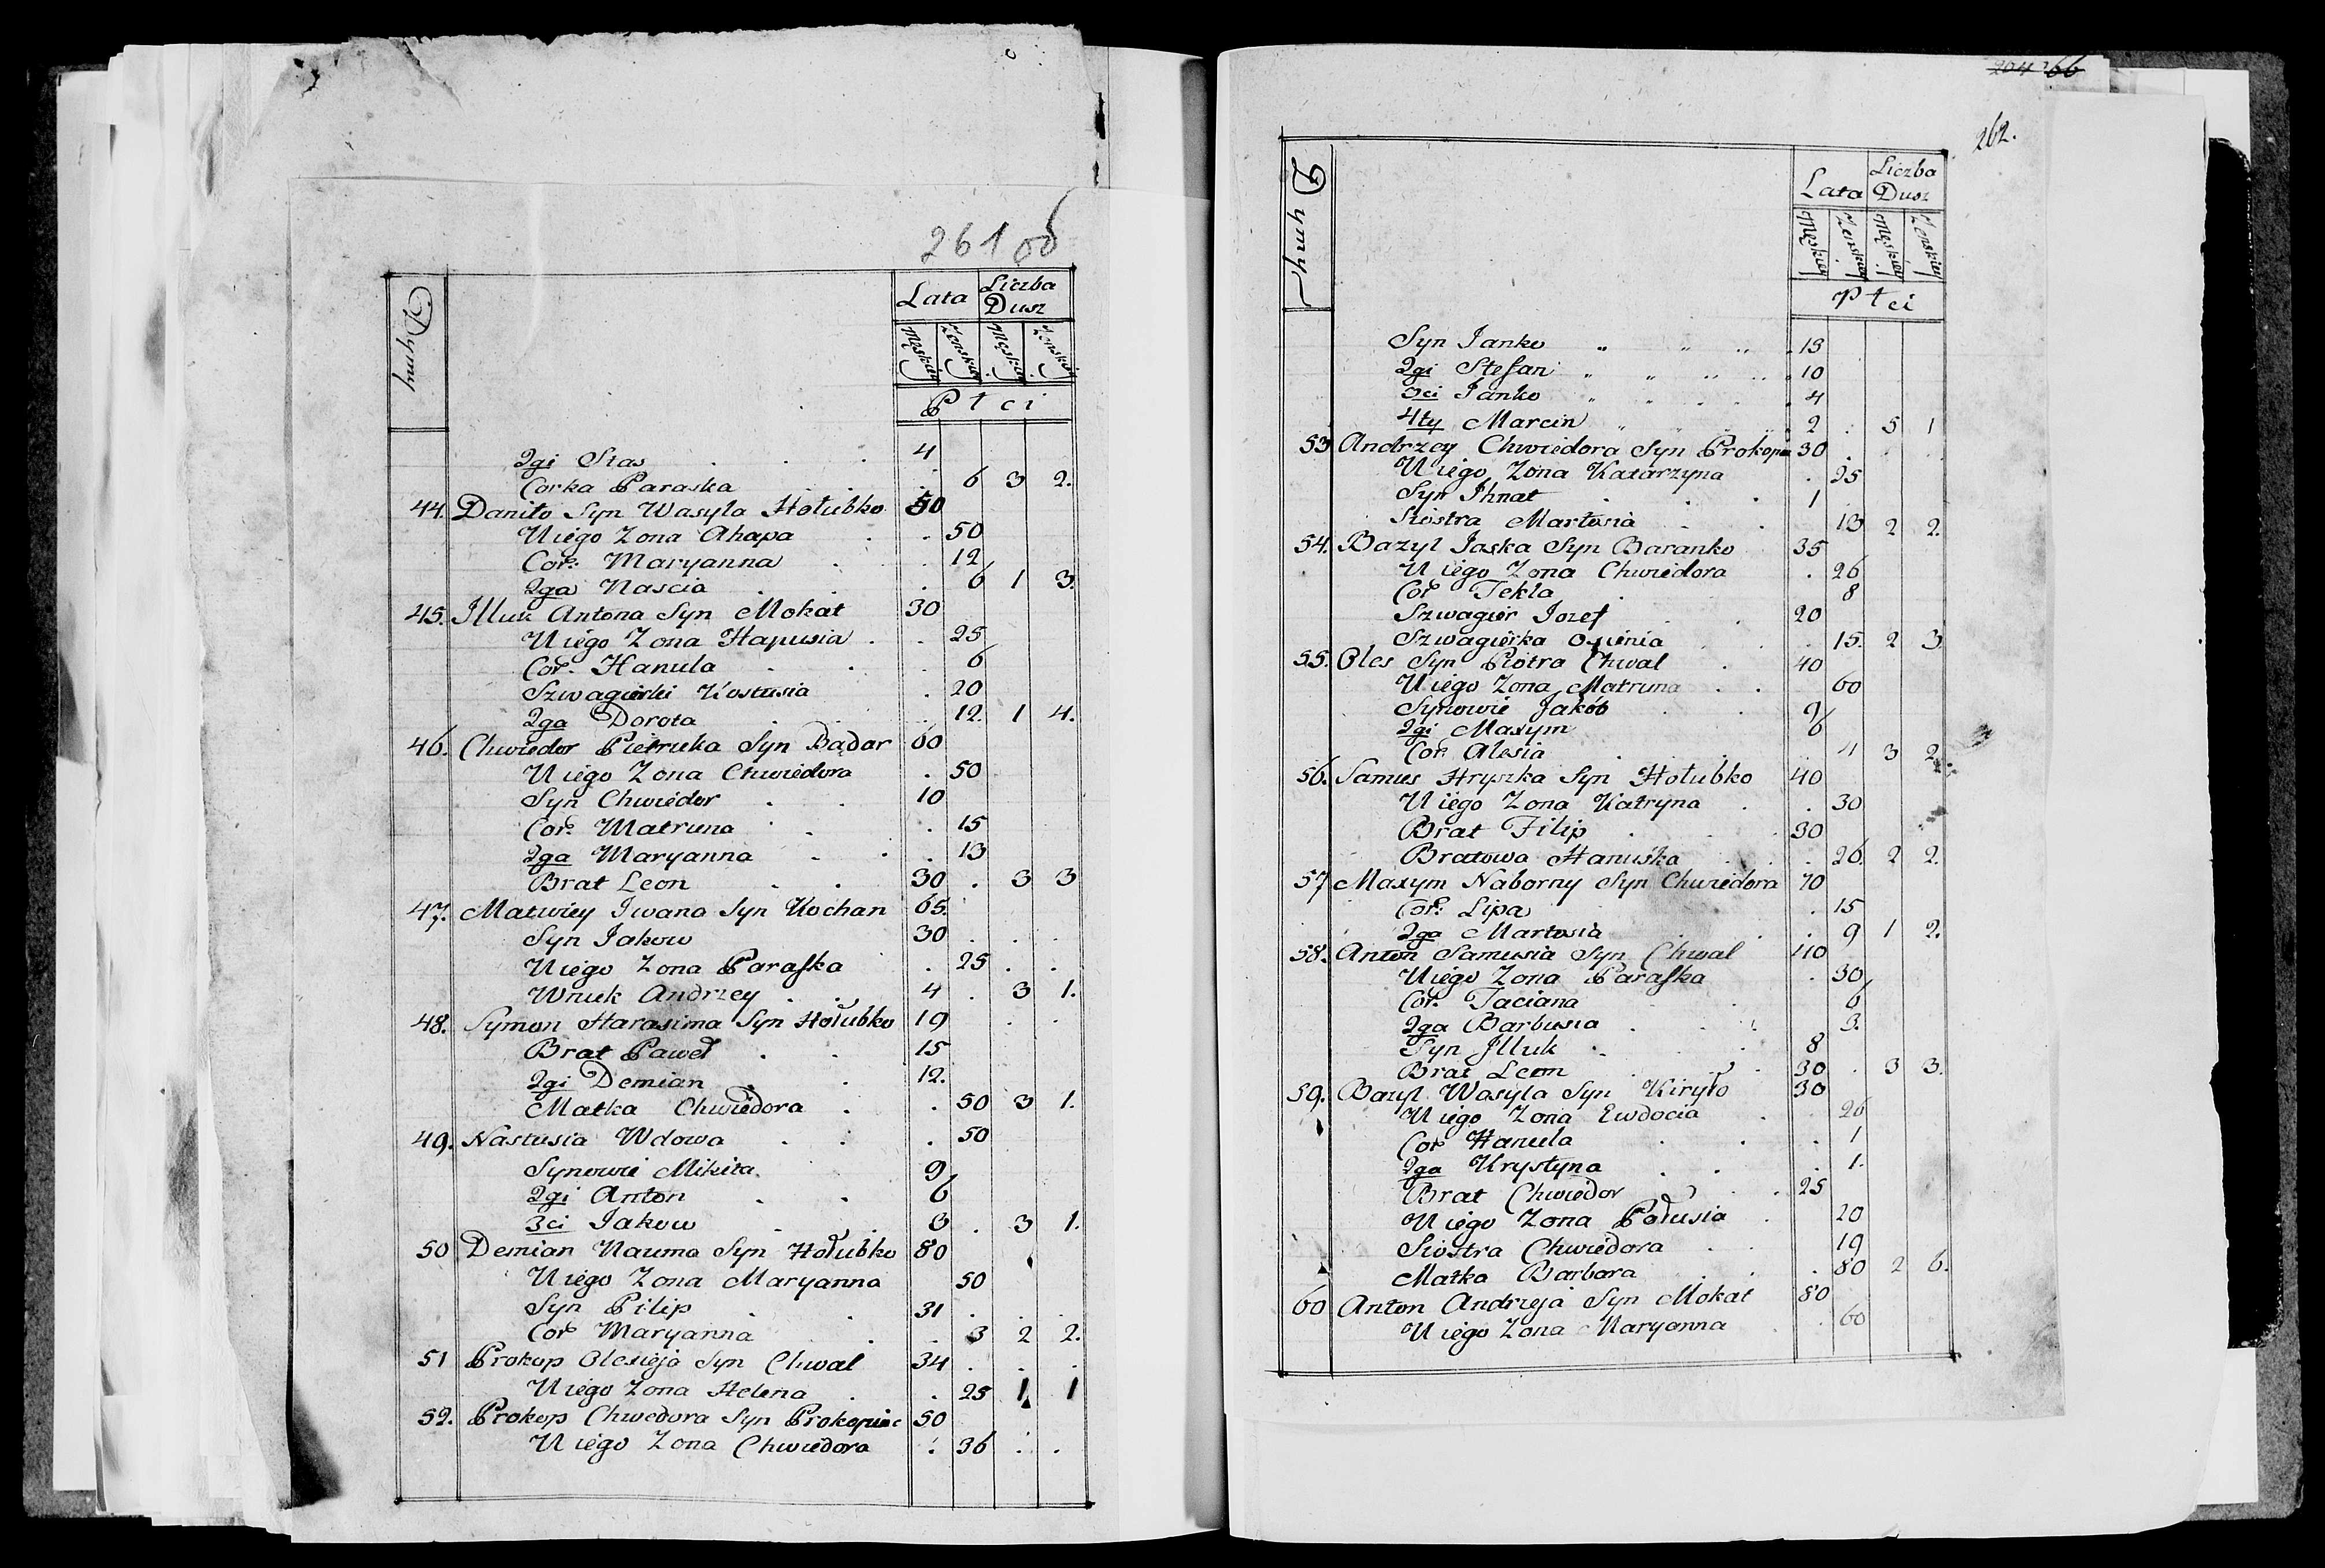 261 об
Dymy
Lata Liczba Dusz
Męskiéj Zenskiéj Męskiéj Zenskiéj
Płci
2gi Stas 4
Corka Paraska 6 3 2.
44. Daniło Syn Wasyla Hołubko 50
U iégo Zona Ahapa 50
Cor: Maryanna 12
2ga Nascia 6 1 3.
45. Illuk Antona Syn Mokat 30
U iégo Zona Hapusia 25
Cor: Hanula 6
Szwagiérki Kostusia 20
2ga Dorota 12. 1 4.
46. Chwiédor Piétruka Syn Bądar 60
U iégo Zona Chwiédora 50
Syn Chwiédor 10
Cor: Matruna 15
2ga Maryanna 13
Brat Leon 30 3 3
47. Matwiéy Iwana Syn Kochan 65.
Syn Jakow 30
U iégo Zona Paraska 25
Wnuk Andrzey 4 3 1.
48. Symon Harasima Syn Hołubko 19
Brat Paweł 15
2gi Demian 12.
Matka Chwiédora 50 3 1.
49. Nastusia Wdowa 50
Synowié Mikita 9
2gi Anton 6
3ci Jakow 3 3 1.
50 Demian Nauma Syn Hołubko 80
U iégo Zona Maryanna 50
Syn Pilip 31
Cor Maryanna 3 2 2.
51 Prokop Olesiéja Syn Chwal 34
U iégo Zona Helena 25 1 1
52. Prokop Chwedora Syn Prokopinc 50
U iégo Zona Chwiédora 36
204 66
262.
Dymy
Lata Liczba Dusz
Męskiéj Zenskiéj Męskiéj Zenskiéj
Płci
Syn Janko 13
2gi Stefan 10
3ci Janko 4
4ty Marcin 2 5 1
53 Andrzey Chwiédora Syn Prokopin 30
U iégo Zona Katarzyna 25
Syn Ihnat 1
Siostra Martosia 13 2 2.
54. Bazyl Jaska Syn Baranko 35
U iégo Zona Chwiédora 26
Cor Tekla 8
Szwagiér Jozef 20
Szwagiérka 15. 2 3
55. Oles Syn Piotra Chwal 40
U iégo Zona Matruna 60
Synowié Jakób 9
2gi Maxym 6
Cor: Alesia 4 3 2.
56. Samus Hryszka Syn Hołubko 40
U iégo Zona Katryna 30
Brat Filip 30
Bratowa Hanuśka 26. 2 2.
57 Maxym Naborny Syn Chwiédora 70
Cor: Lipa 15
2ga Martosia 9 1 2.
58. Anton Samusia Syn Chwal 40
U iégo Zona Paraska 30
Cor. Taciana 6
2ga Barbusia 3.
Syn Illuk 8
Brat Leon 30 3 3.
59. Bazyl Wasyla Syn Kiryło 30
U iégo Zona Ewdocia 26
Cor Hanula 1
2ga Krystyna 1.
Brat Chwiédor 25
U iégo Zona Połusia 20
Siostra Chwiédora 19
Matka Barbara 80 2 6.
60 Anton Andrzeja Syn Mokat 80
U iégo Zona Maryanna 60